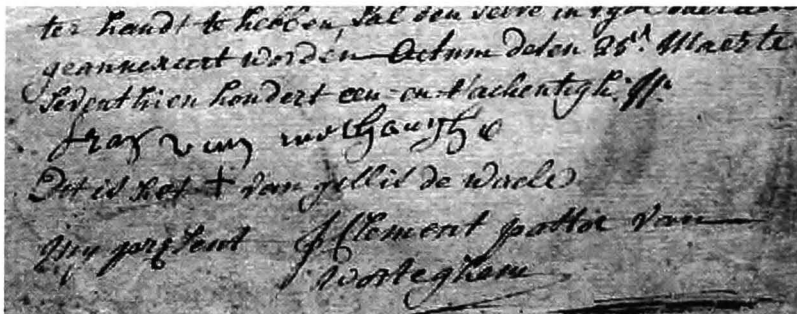 ter handt te hebben, sal den selve in
geannexeert worden Actum desen 25st. Maerte
seventhien hondert een-en-tachentigh
van
Dit is het + van gillis de waele
My present J Clement pastor van
Worteghem